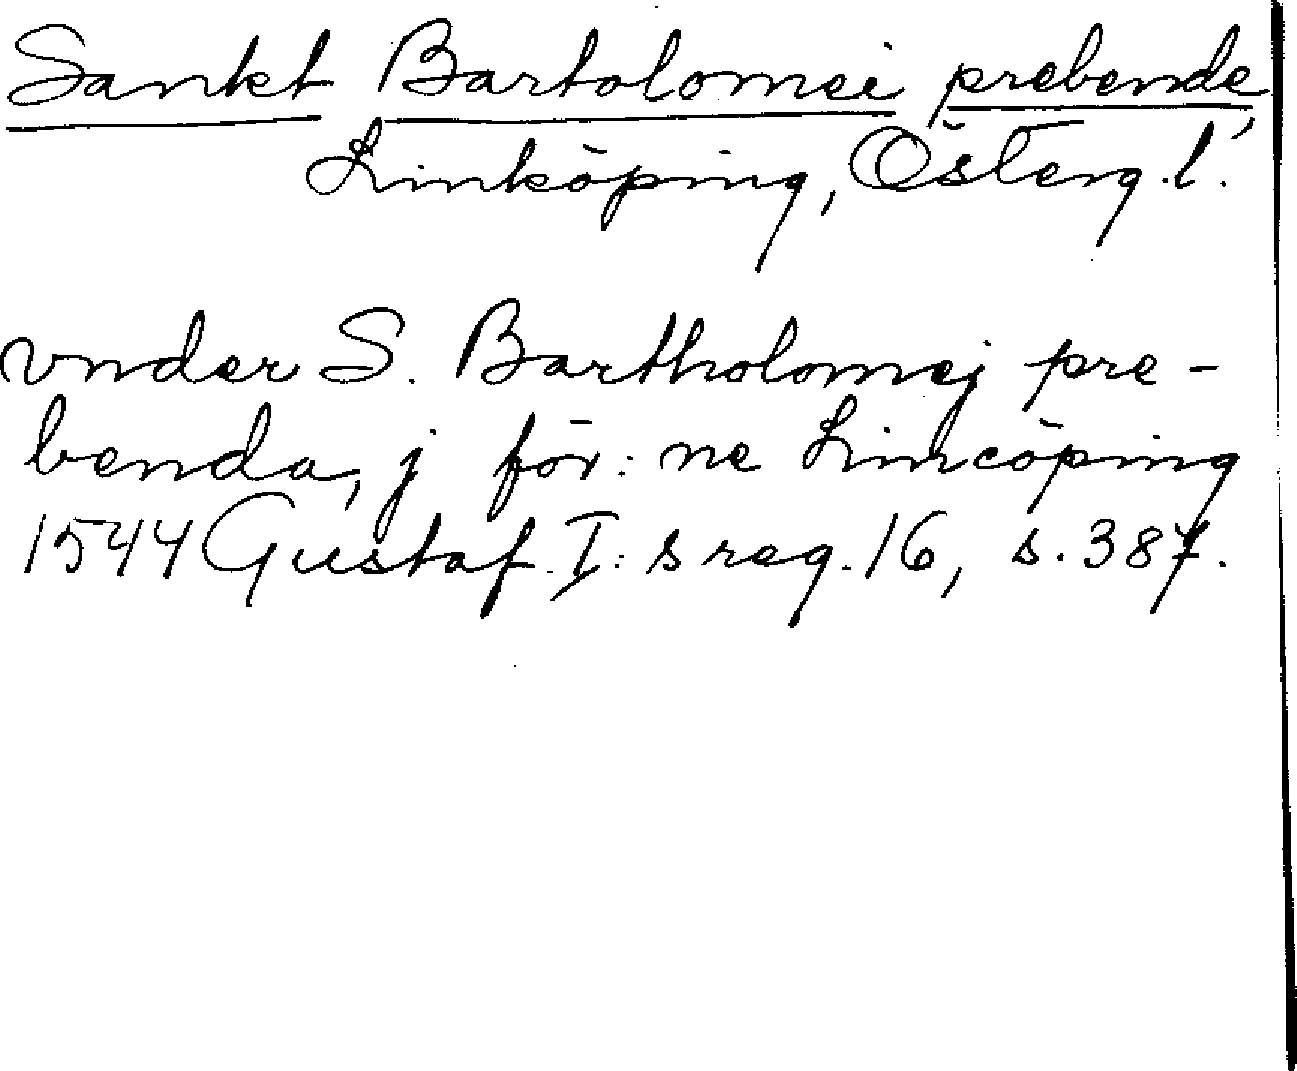 Sankt Bartolomei prebende,
Linköping, Österg.l.
vnder S. Bartholomej pre-
benda, j för: ne Linicöping
1544 Gustaf I: s reg. 16, s. 387.